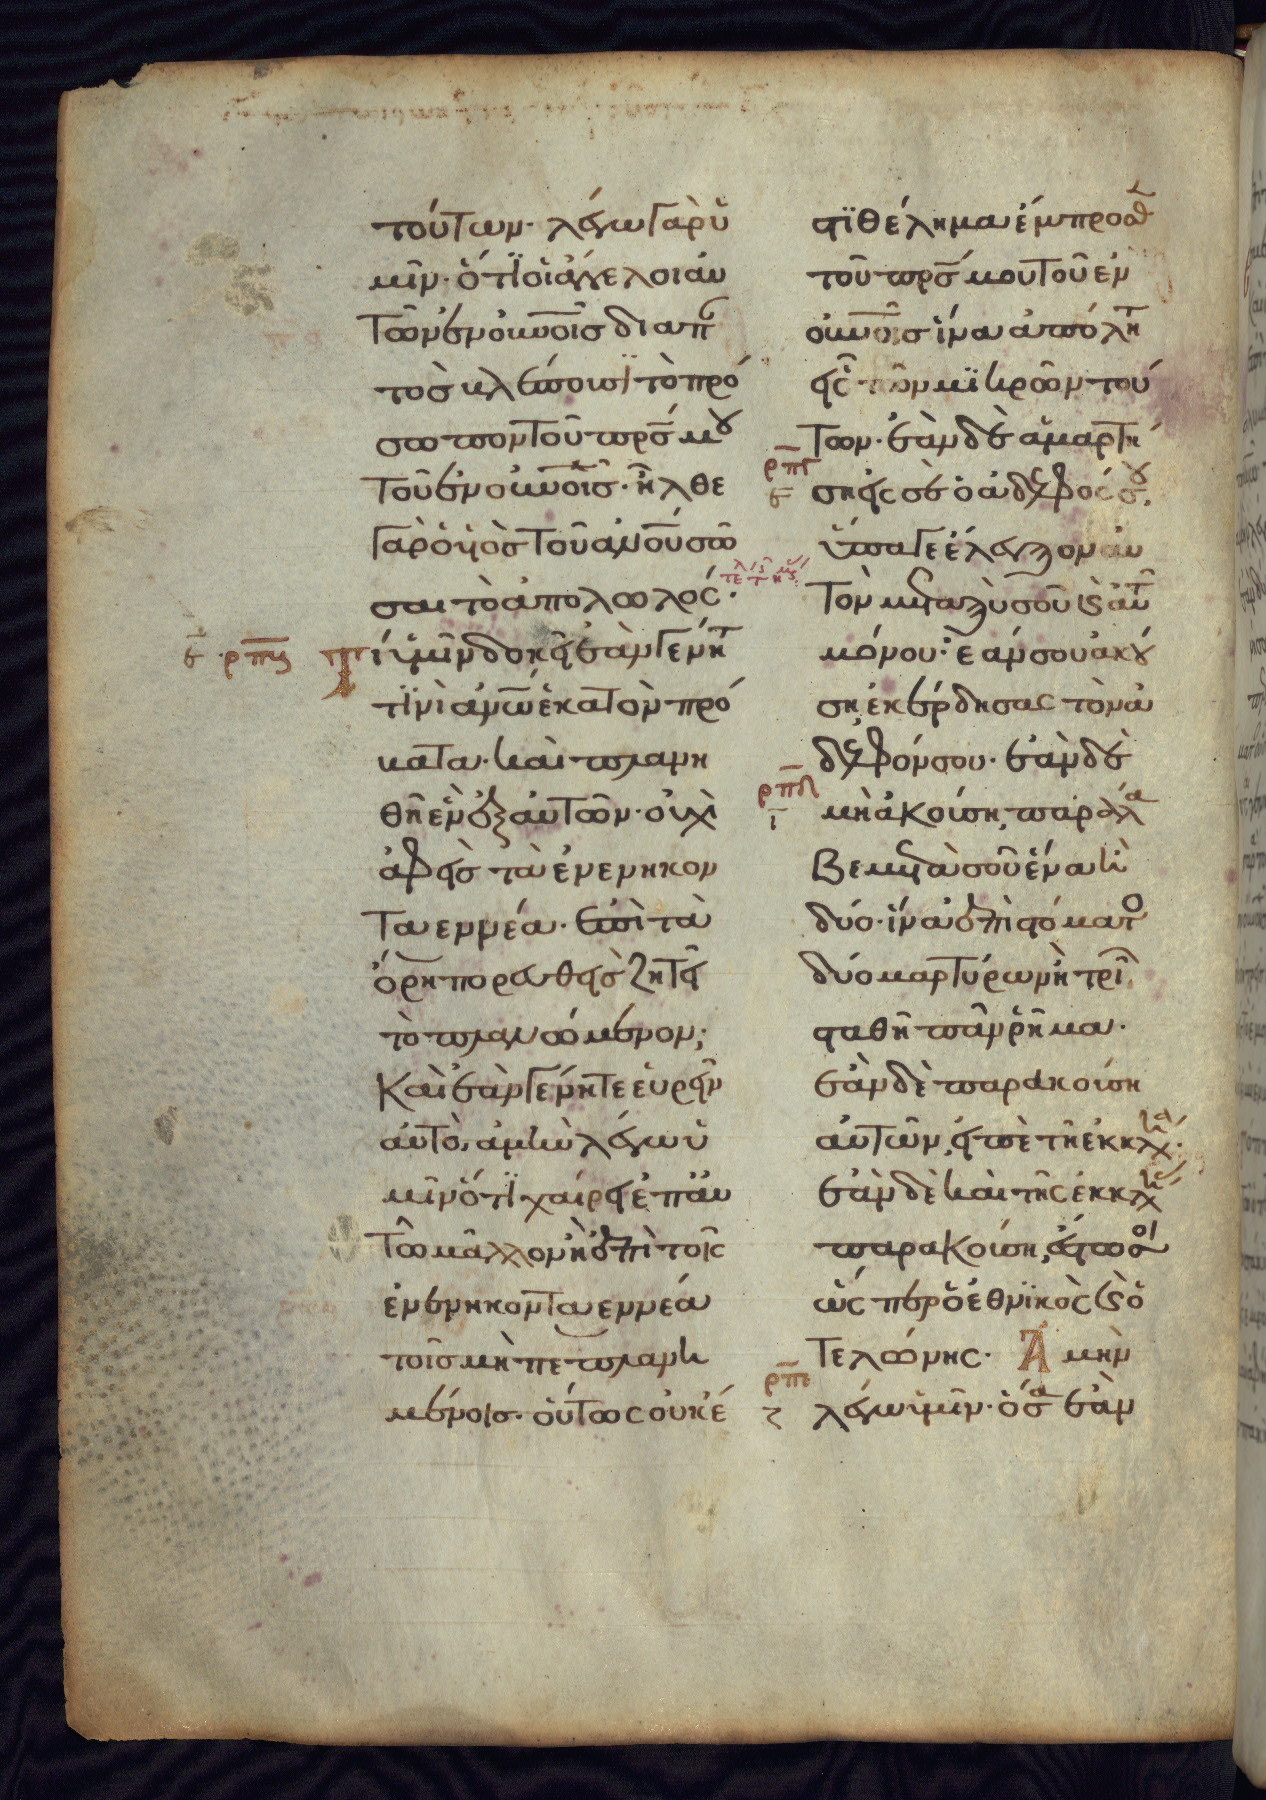 τούτων· λέγω γὰρ ὑ
μῖν· ὅτϊ οἱ ἄγγελοι αὐ
τῶν ἐν οὐνοῖς διαπ
τὸς βλέπουσϊ τὸ πρό
σωπον τοῦ πρς μου
τοῦ ἐν οὐνοῖς· ἦλθε
γὰρ ὁ υἱὸς τοῦ ανου σῶ
σαι τὸ ἀπολωλός·
Τί ὑμῖν δοκεῖ ἐὰν γένητ
τϊνὶ ανω ἑκατὸν πρό
βατα· καὶ πλανη
θῆ ἓν ἐξ αὐτῶν· οὐχὶ
ἀφεὶς τὰ ἐνενηκον
τα εννέα· ἐπὶ τὰ
ὄρη πορευθεὶς ζητεῖ
τὸ πλανώμενον;
Καὶ ἐὰν γένητε εὑρεῖν
αὐτὸ, ἀμὴν λέγω ὑ
μῖν ὅτϊ χαίρει ἐπ αὐ
τῶ μᾶλλον ἢ ἐπὶ τοῖς
ἐνενηκονταεννέα
τοῖς μὴ πεπλανη
μένοις· οὕτως οὐκ έ
στϊ θέλημα έμπροσθ
τοῦ πρς μου τοῦ εν
οὐνοῖς ἵνα ἀπόλητ
εἷς τῶν μϊκρῶν τού
των· ἐὰν δὲ ἁμαρτή
σει εἰς σὲ ὁ ἀδελφός σου,
ὕπαγε έλεγξον αὐ
τὸν μεταξὺ σοῦ καὶ αὐτ
μόνου· ἐάν σου ακού
ση, ἐκέρδησας τὸν ἀ
δελφόν σου· ἐὰν δὲ
μὴ ἀκούση, παράλα
βε μετὰ σοῦ ἕνα ἢ
δύο· ἵνα ἐπὶ στόματο
δύο μαρτύρων ἢ τρι
σταθῆ πᾶν ῥῆμα·
ἐὰν δὲ παρακούση
αὐτῶν, εἰπὲ τῆ ἐκκλ·
ἐὰν δὲ καὶ τῆς ἐκκλ
παρακούση, ἔστω σοι
ὥς περ ὁ ἐθνϊκὸς καὶ ὁ
τελώνης· Ἀμὴν
λέγω ὑμῖν· ὅσα ἐὰν